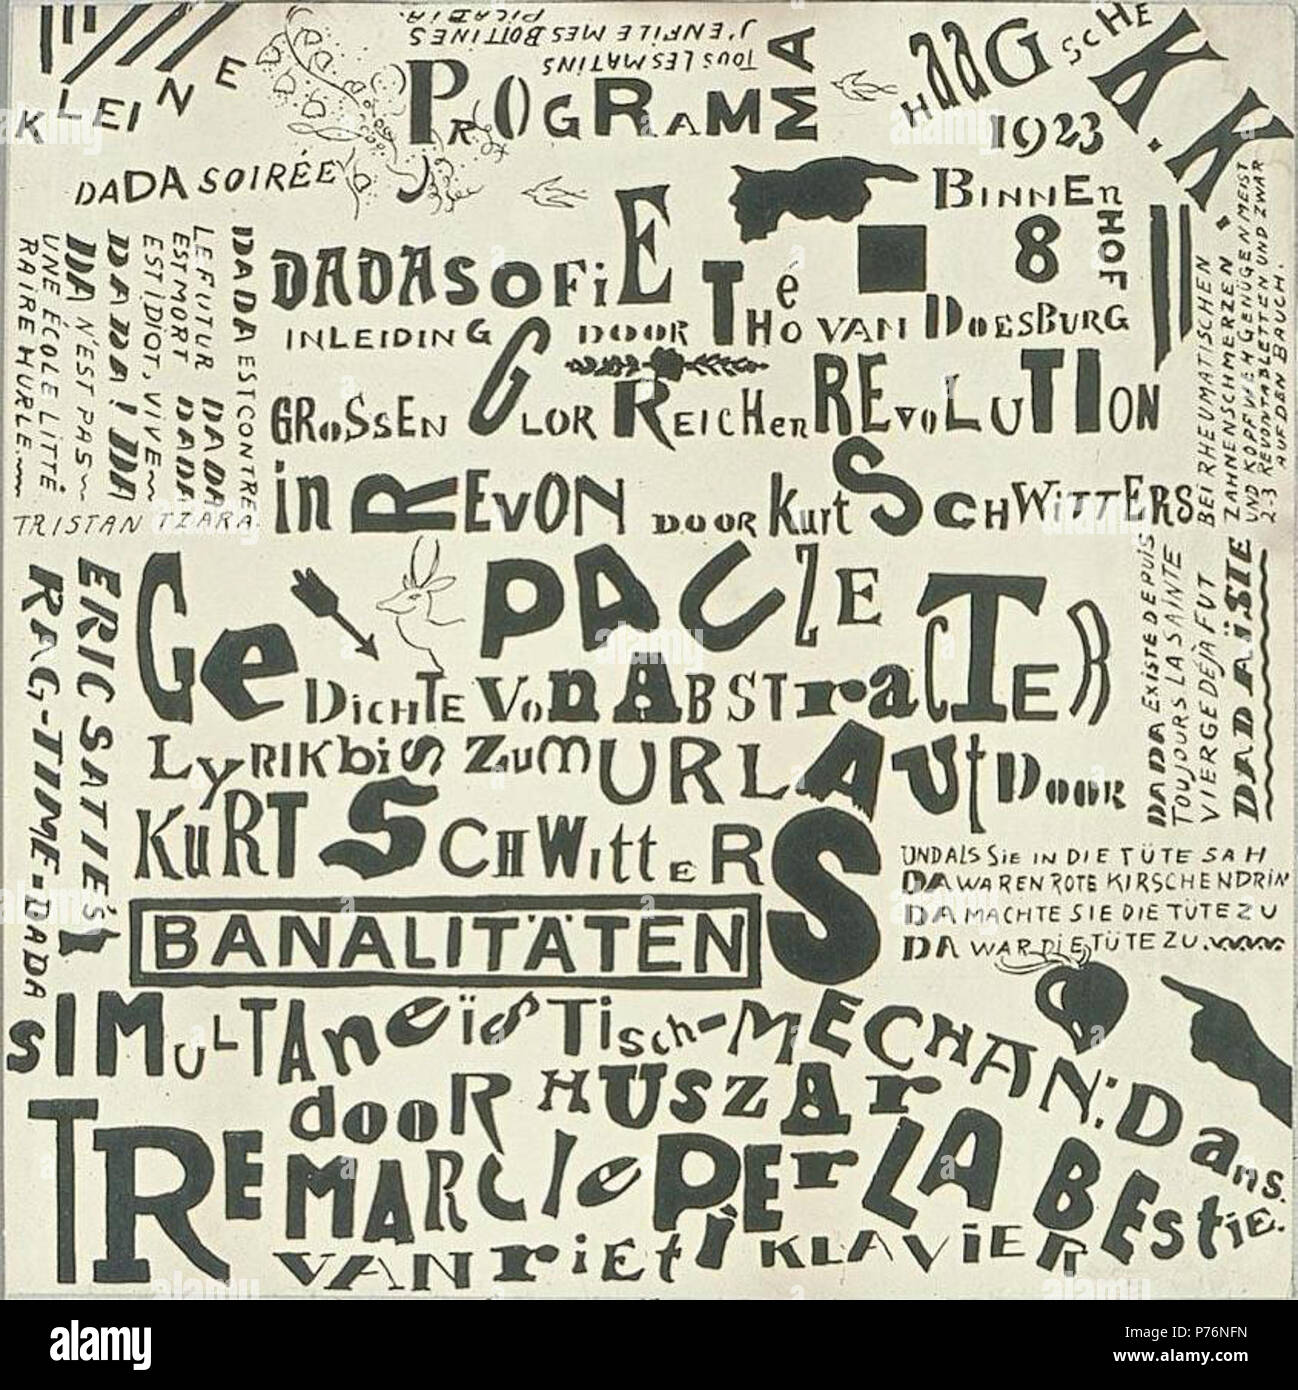 KLEINE
DADA SOIRÉE
TOUS LES MATINS
J'ENFILE MES BOTTINES
PICABIA.
PROGRAMMA
HAAGSCHE K.K.
1923
BINNENHOF
8
DADASOFIE
INLEIDING DOOR Théo VAN DOESBURG
GROSSEN GLORREICHEN REVOLUTION
in REVON DOOR Kurt SCHWITTERS
PAUZE
GeDICHTE VON ABSTRACTER
LYRIK bis ZUM URLAUT DOOR
KURT SCHWITTERS
BANALITÄTEN
SIMULTANEÏSTISCH-MECHAN: DANS.
door HUSZAR
TRE MARCIE PER LA BESTIE.
VAN RIETI KLAVIER
DADA EST CONTRE
LE FUTUR DADA
EST MORT DADA
EST IDIOT, VIVE
DADA! DADA
DA N'EST PAS
UNE ÉCOLE LITTÉ
RAIRE HURLE
TRISTAN TZARA.
ERIC SATIE'S
RAG-TIME-DADA
BEI RHEUMATISCHEN
ZAHNENSCHMERZEN
UND KOPFWEH GENÜGEN MEIST
2-3 REVONTABLETTEN UND ZWAR
AUF DEN BAUCH.
DADA EXISTE DEPUIS
TOUJOURS LA SAINTE
VIERGE DÉJA FUT
DADAÏSTE
UND ALS SIE IN DIE TÜTE SAH
DA WAREN ROTE KIRSCHEN DRIN
DA MACHTE SIE DIE TÜTE ZU
DA WAR DIE TÜTE ZU.
alamy
a
alamy
Image ID: P76NFN
www.alamy.com